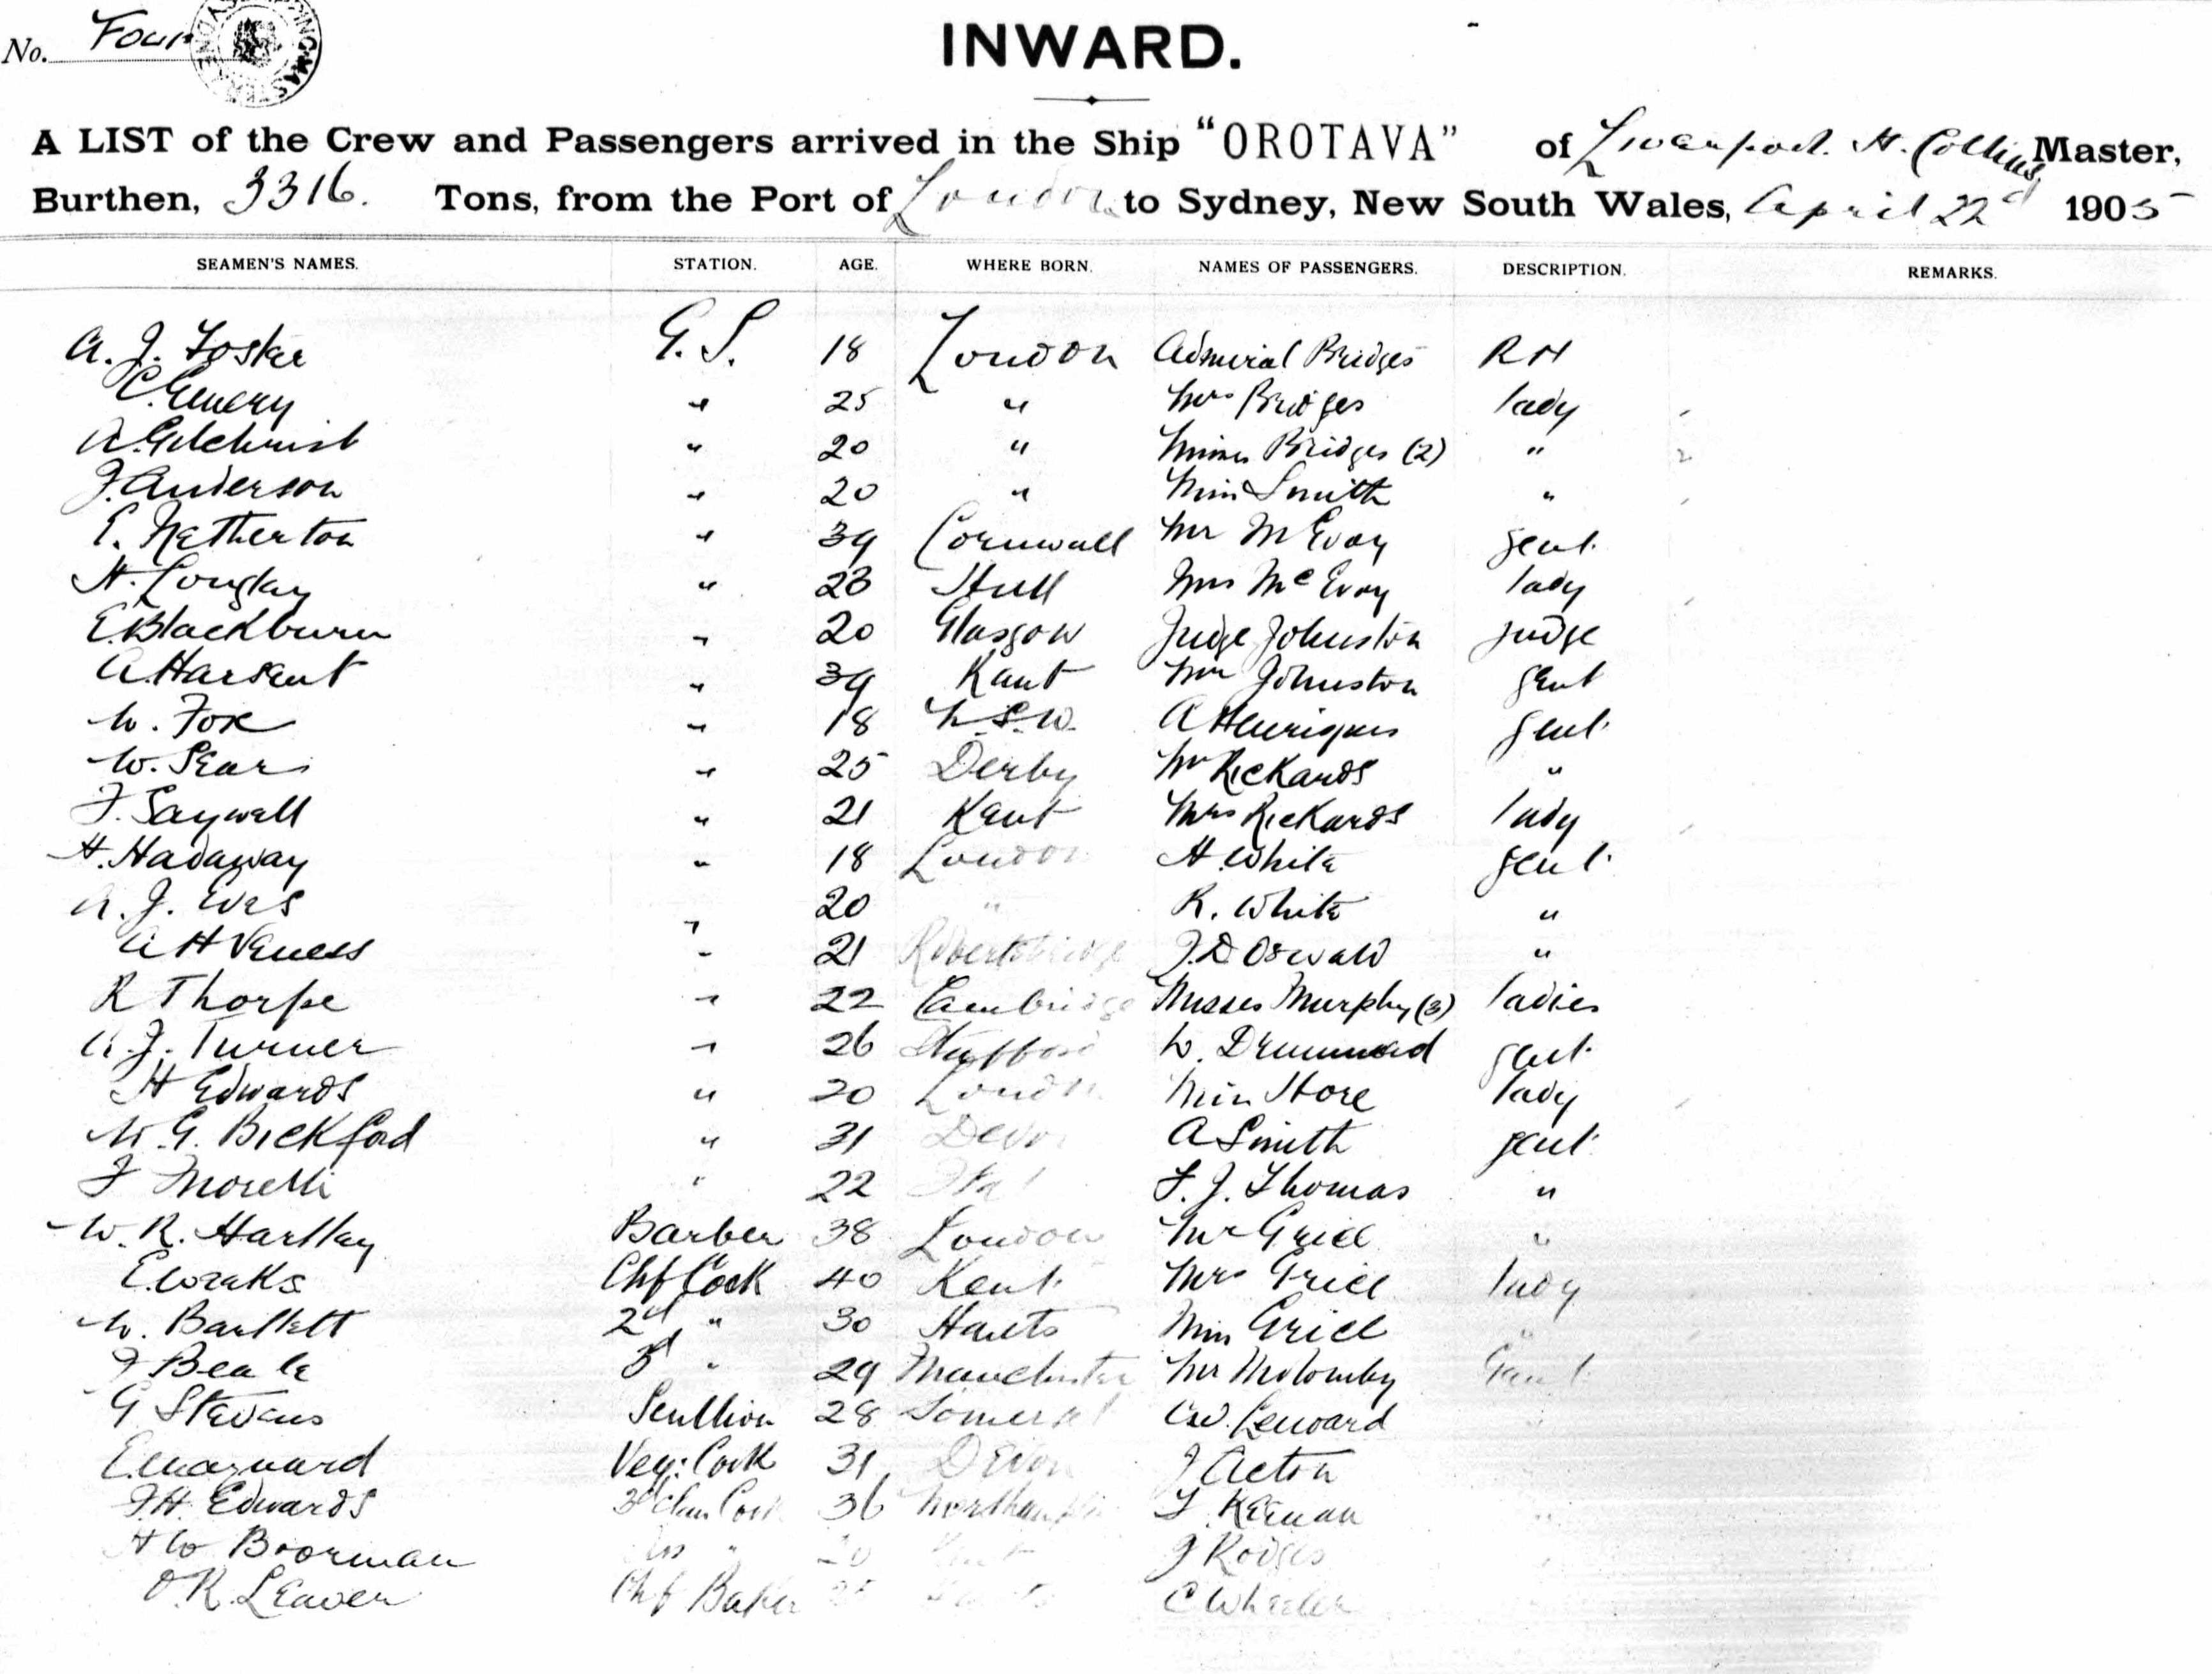 No. Four
INWARD.
A LIST of the Crew and Passengers arrived in the Ship "OROTAVA" of Liverpool. H. Collins, Master,
Burthen, 3316. Tons, from the Port of London to Sydney, New South Wales, April 22d 1905
SEAMEN'S NAMES. STATION. AGE. WHERE BORN. NAMES OF PASSENGERS. DESCRIPTION. REMARKS.
A. J. Foster G. S. 18 London Admiral Bridges RN
C. Emery " 25 " Mrs Bridges lady
A. Gilchrist " 20 " Misses Bridges (2) "
J. Anderson " 20 " Miss Smith "
E. Netherton " 39 Cornwall Mr McEvoy gent.
H. " 23 Hull Mrs McEvoy lady
E. Blackburn " 20 Glasgow Judge Johnston judge
A. Harsant " 39 Kent Mr Johnston gent
W. Fox " 18 N.S.W. A Henriques gent.
W. Sears " 25 Derby Mr Rickards "
F. Saywell " 21 Kent Mrs Rickards lady
H. Hadaway " 18 London H. White gent.
A. J. Eves " 20 " R. White "
A H Veness " 21 Robertsbridge J. D. Oswald "
R Thorpe " 22 Cambridge Misses Murphy (3) ladies
A. J. Turner " 26 Stafford W. Drummond gent.
H Edwards " 20 London Miss Hore lady
W. G. Bickford " 31 Devon A Smith gent.
F Morelli " 22 F. J. Thomas "
W. R. Hartley Barber 38 London Mr Grice "
E. Weeks Chf Cook 40 Kent. Mrs Grice lady
W. Bartlett 2d " 30 Hants Miss Grice "
F Beale 3d " 29 Manchester Mr Molomby Gent.
G Stevens Scullion 28 Somerset Leward "
E. Maynard Veg: Cook 31 Devon J Acton
J. H. Edwards 3d Class Cook 36 F. Keenan
H W Boorman Ass " 20 Kent J Rodges
O. R. Leaver Chf Baker C Wheeler